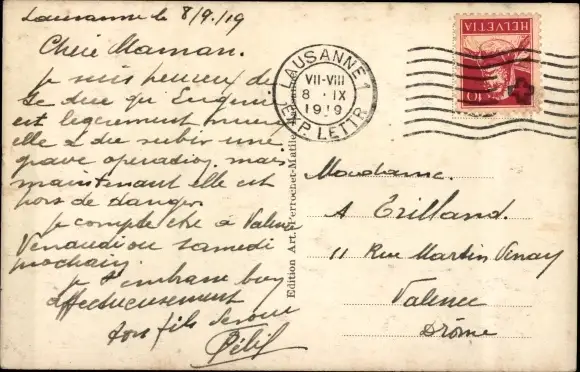 Lausanne le 8/9/19
Chère Maman.
je suis heureux de
te dire qu'Eugenie
est legèrement mieux
elle a du subir une
grave operation, mais
maintenant elle est
hors de danger
je compte être à Valence
Vendredi ou samedi
prochain.
je t'embrasse bien
affectueusement
ton fils devoué
Edition Art. Perrochet-Matile
LAUSANNE 1
VII-VIII
8 IX
1919
EXP. LETTR.
HELVETIA
10
Madame.
A Trilland.
11 Rue Martin Vinay
Valence
Drôme